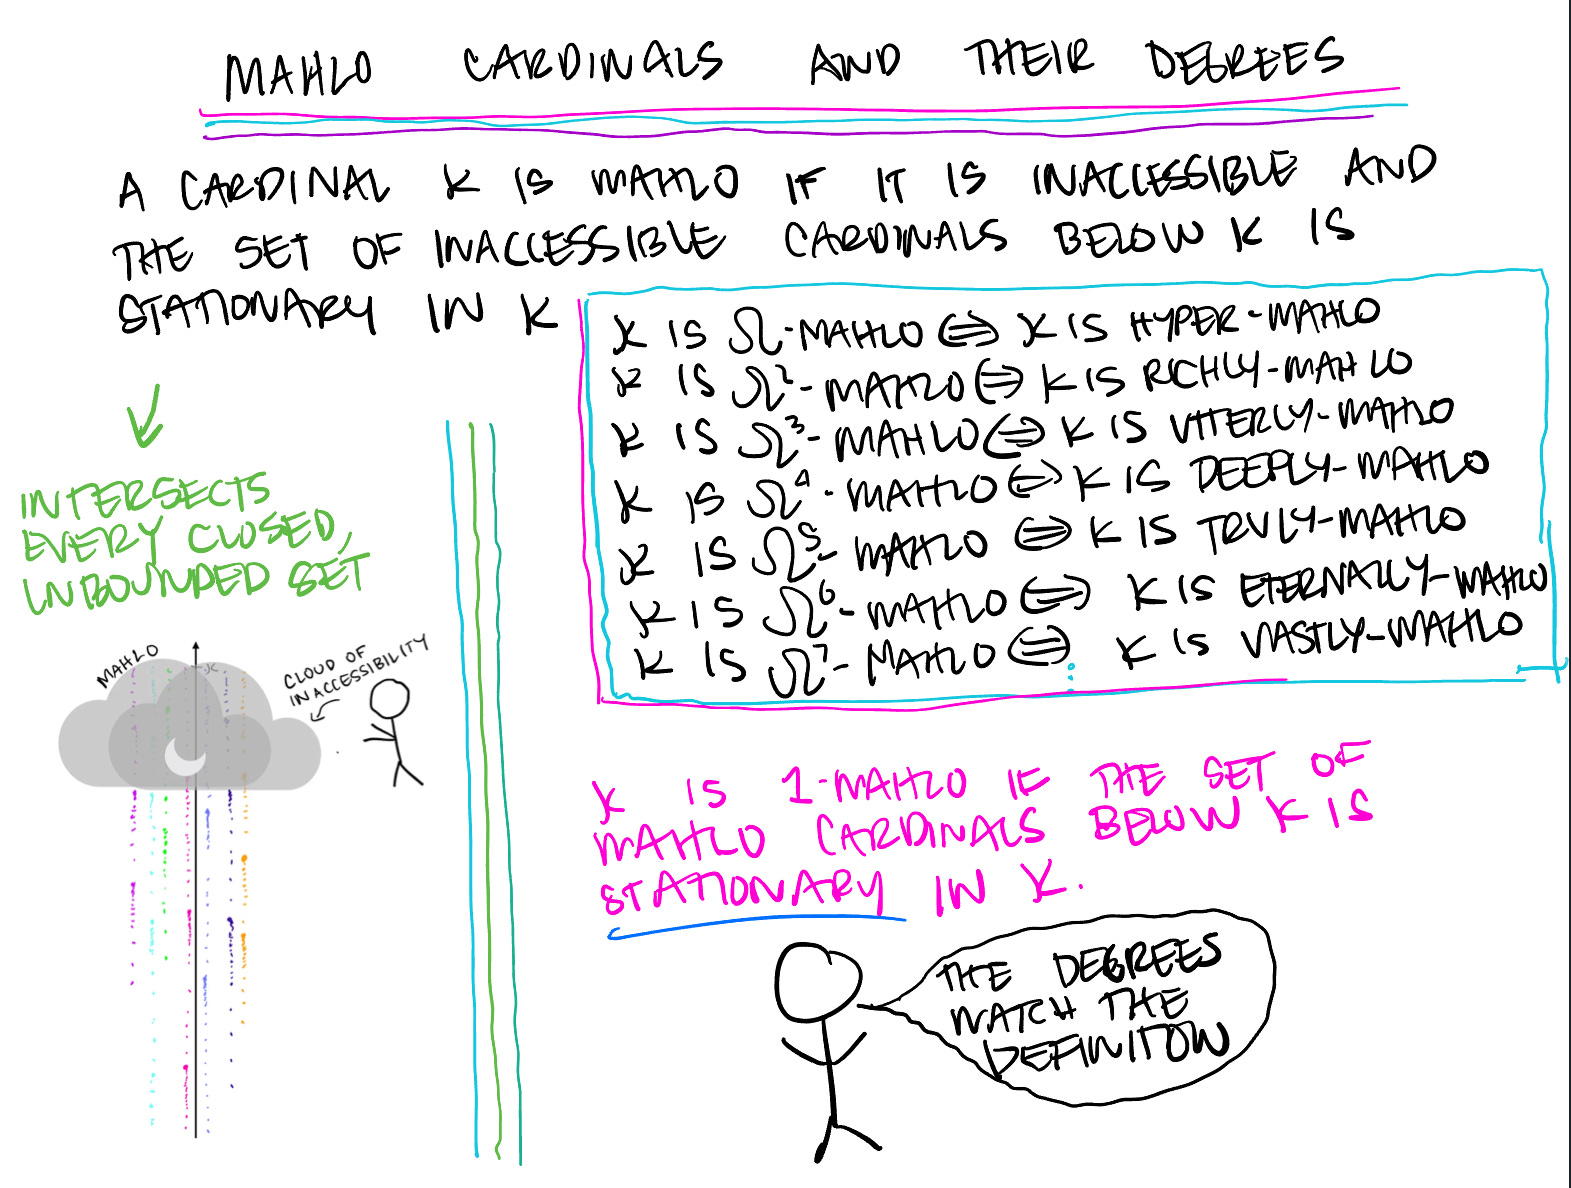 MAHLO CARDINALS AND THEIR DEGREES
A CARDINAL K IS MAHLO IF IT IS INACCESSIBLE AND
THE SET OF INACCESSIBLE CARDINALS BELOW K IS
STATIONARY IN K
INTERSECTS
EVERY CLOSED,
UNBOUNDED SET
K IS Ω-MAHLO ⇔ K IS HYPER-MAHLO
K IS Ω²-MAHLO ⇔ K IS RICHLY-MAHLO
K IS Ω³-MAHLO ⇔ K IS UTTERLY-MAHLO
K IS Ω⁴-MAHLO ⇔ K IS DEEPLY-MAHLO
K IS Ω⁵-MAHLO ⇔ K IS TRULY-MAHLO
K IS Ω⁶-MAHLO ⇔ K IS ETERNALLY-MAHLO
K IS Ω⁷-MAHLO ⇔ K IS VASTLY-MAHLO
MAHLO
K
CLOUD OF
INACCESSIBILITY
K IS 1-MAHLO IF THE SET OF
MAHLO CARDINALS BELOW K IS
STATIONARY IN K.
THE DEGREES
MATCH THE
DEFINITION